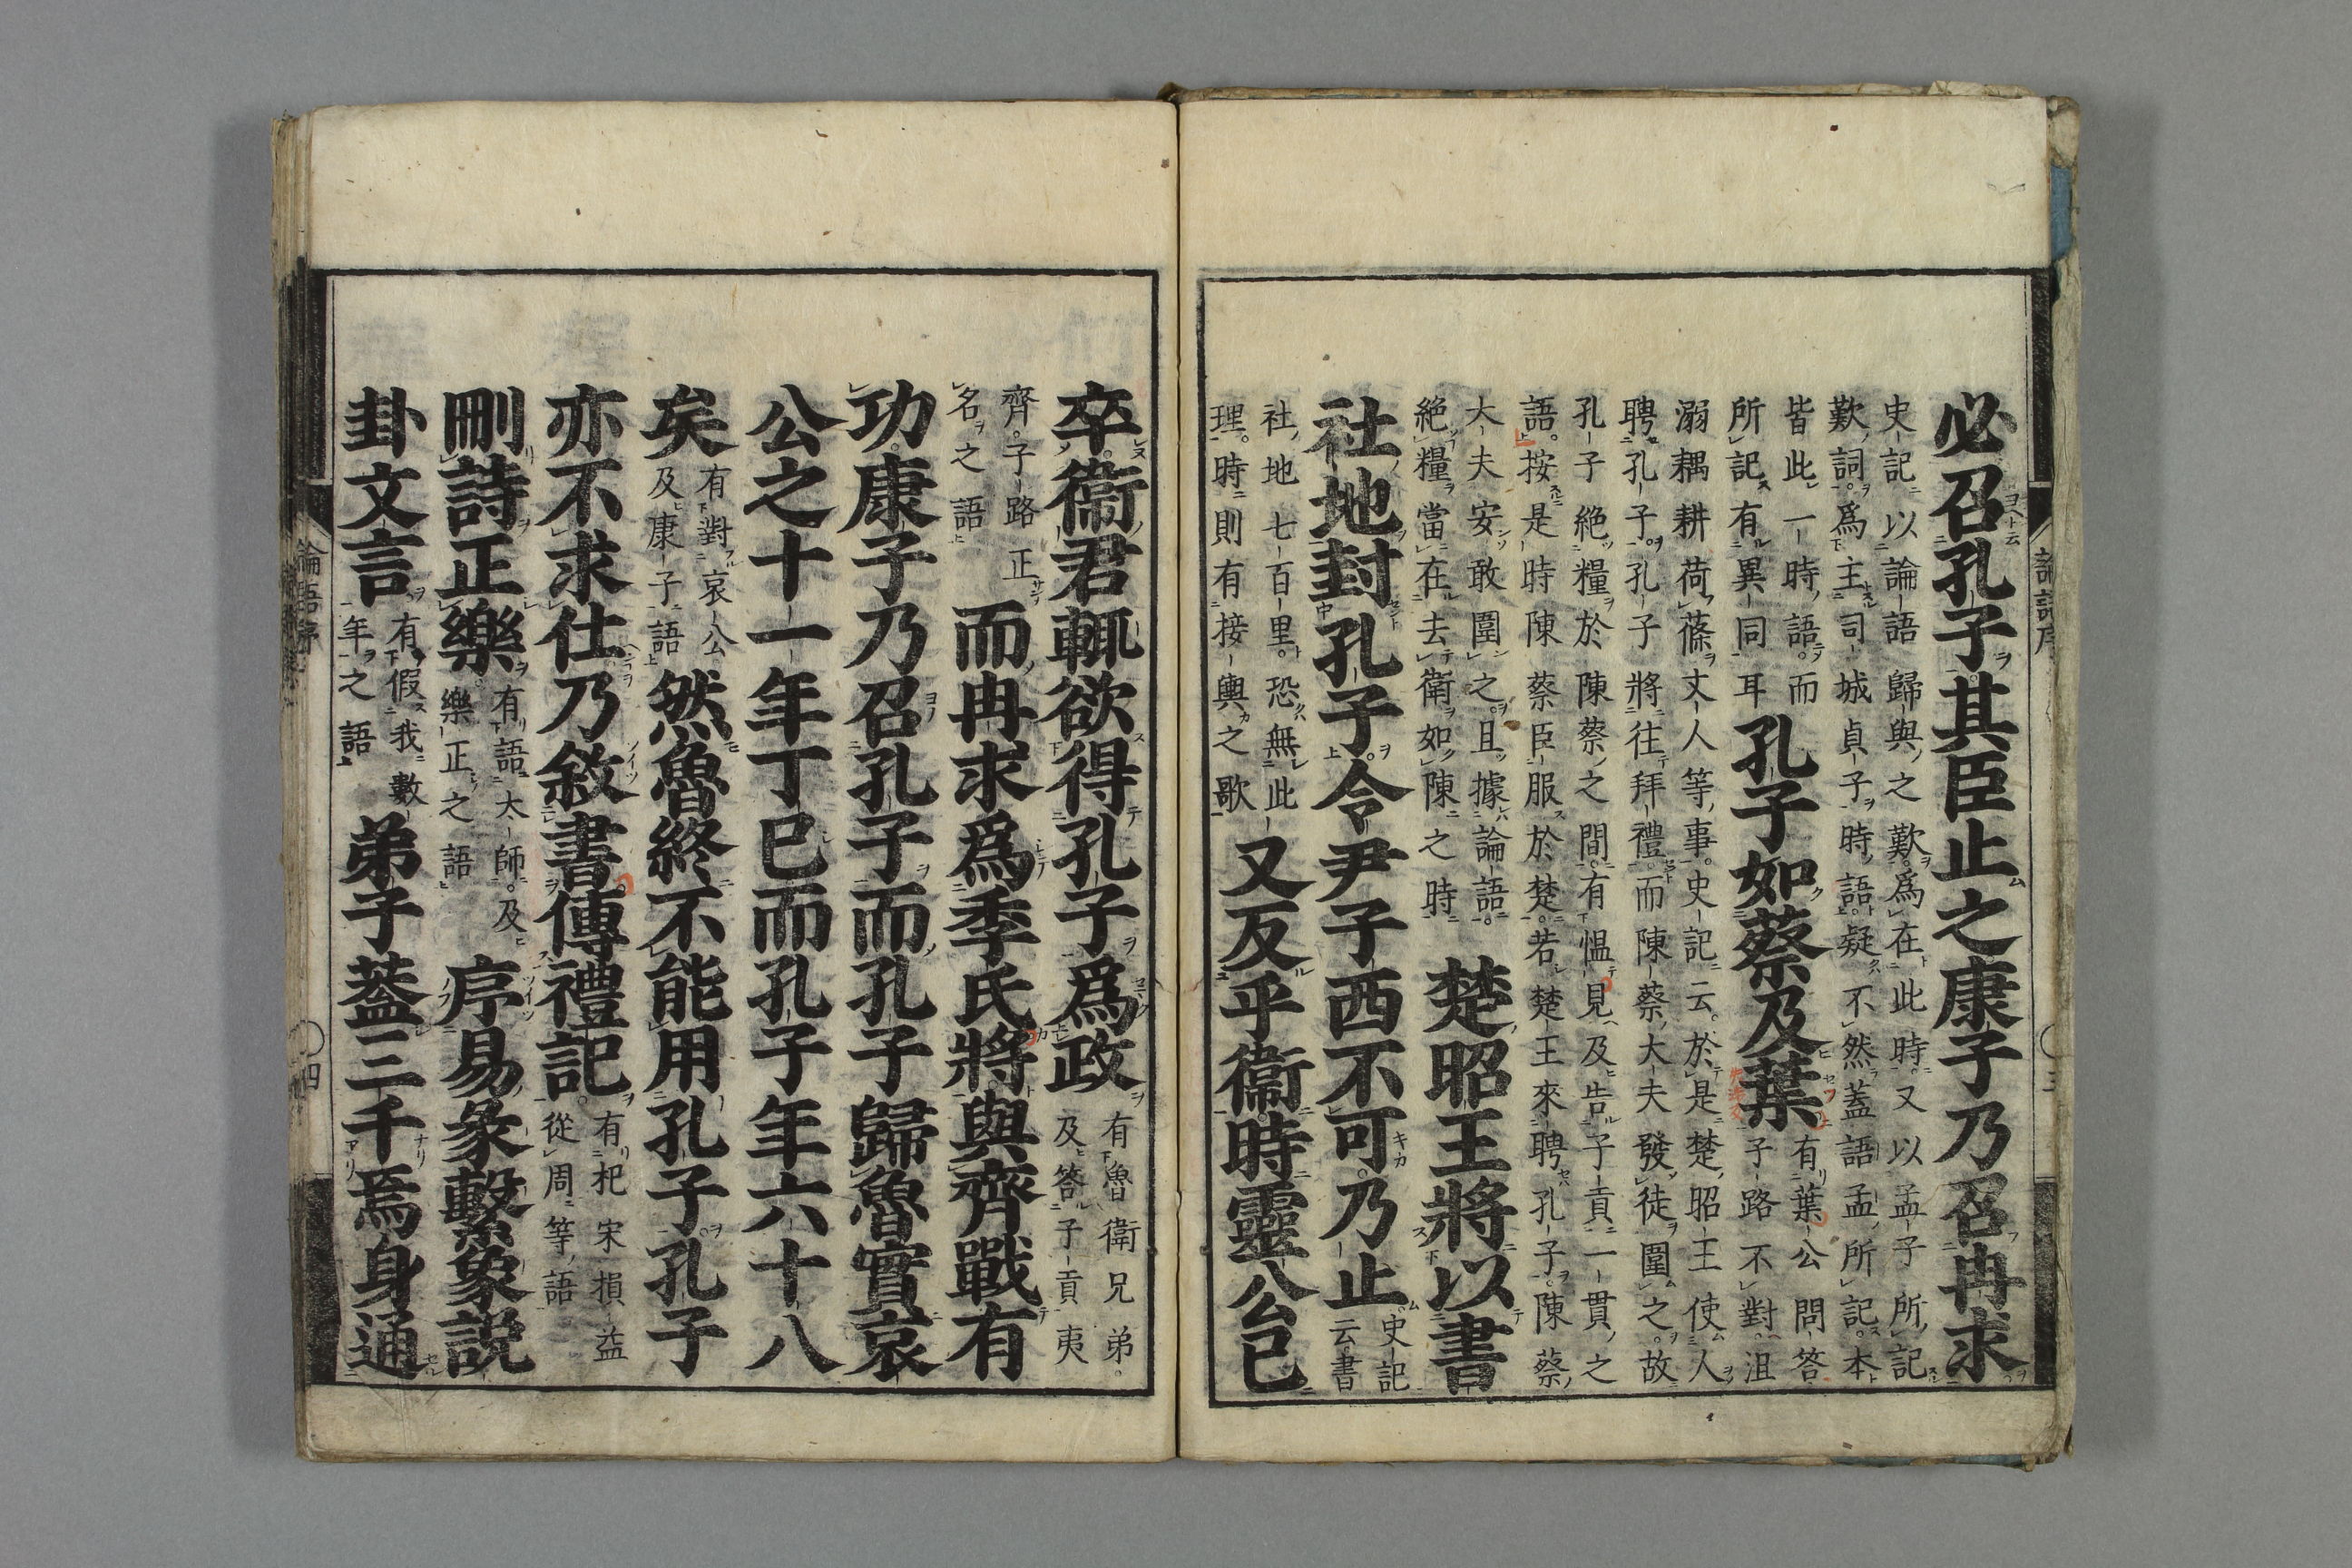 必召孔子其臣止之康子乃召冉求
史記以論語歸與之歎爲在此時又以孟子所記
歎詞爲主司城貞子時語疑不然蓋語孟所記本
皆此一時語而
所記有異同耳
孔子如蔡及葉
有葉公問答
子路不對沮
溺耦耕荷蓧丈人等事史記云於是楚昭王使人
聘孔子孔子將往拜禮而陳蔡大夫發徒圍之故
孔子絶糧於陳蔡之間有慍見及告子貢一貫之
語按是時陳蔡臣服於楚若楚王來聘孔子陳蔡
大夫安敢圍之且據論語
絶糧當在去衛如陳之時
楚昭王將以書
社地封孔子令尹子西不可乃止
史記
云書
社地七百里恐無此
理時則有接輿之歌
又反乎衞時靈公已
卒衞君輒欲得孔子爲政
有魯衛兄弟
及答子貢夷
齊子路正
名之語
而冉求爲季氏將與齊戰有
功康子乃召孔子而孔子歸魯實哀
公之十一年丁巳而孔子年六十八
矣
有對哀公
及康子語
然魯終不能用孔子孔子
亦不求仕乃敘書傳禮記
有杞宋損益
從周等語
刪詩正樂
有語太師及
樂正之語
序易彖繫象説
卦文言
有假我數
年之語
弟子蓋三千焉身通
論語序
四